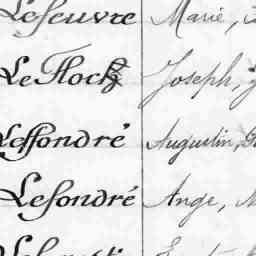 Lefeuvre Marie,
Le Floch Joseph,
Leffondré Augustin,
Lefondré Ange,